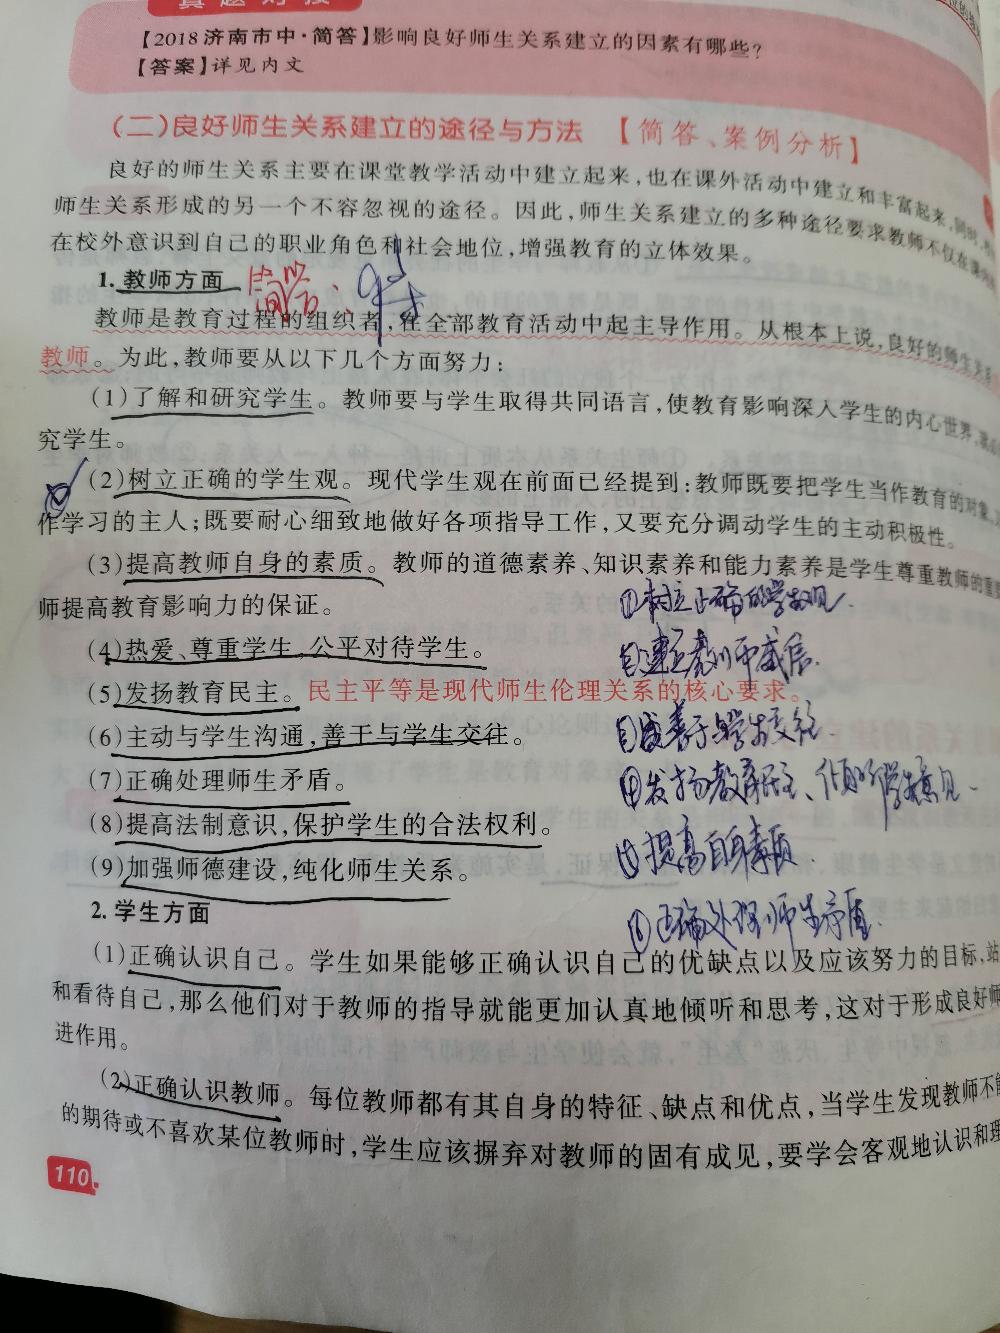 真题对接
【2018济南市中·简答】影响良好师生关系建立的因素有哪些？
【答案】详见内文
（二）良好师生关系建立的途径与方法 【简答、案例分析】
良好的师生关系主要在课堂教学活动中建立起来，也在课外活动中建立和丰富起来，同时，
师生关系形成的另一个不容忽视的途径。因此，师生关系建立的多种途径要求教师不仅在课
在校外意识到自己的职业角色和社会地位，增强教育的立体效果。
1.教师方面 简答：
教师是教育过程的组织者，在全部教育活动中起主导作用。从根本上说，良好的师生关系
教师。为此，教师要从以下几个方面努力：
（1）了解和研究学生。教师要与学生取得共同语言，使教育影响深入学生的内心世界，
究学生。
（2）树立正确的学生观。现代学生观在前面已经提到：教师既要把学生当作教育的对象，
作学习的主人；既要耐心细致地做好各项指导工作，又要充分调动学生的主动积极性。
（3）提高教师自身的素质。教师的道德素养、知识素养和能力素养是学生尊重教师的重要
师提高教育影响力的保证。
①树立正确的学生观.
（4）热爱、尊重学生，公平对待学生。
②建立教师威信.
（5）发扬教育民主。民主平等是现代师生伦理关系的核心要求。
（6）主动与学生沟通，善于与学生交往。
③善于与学生交往.
（7）正确处理师生矛盾。
④发扬教育民主、倾听学生意见.
（8）提高法制意识，保护学生的合法权利。
⑤提高自身素质.
（9）加强师德建设，纯化师生关系。
⑥正确处理师生矛盾.
2.学生方面
（1）正确认识自己。学生如果能够正确认识自己的优缺点以及应该努力的目标，站
和看待自己，那么他们对于教师的指导就能更加认真地倾听和思考，这对于形成良好师
进作用。
（2）正确认识教师。每位教师都有其自身的特征、缺点和优点，当学生发现教师不能
的期待或不喜欢某位教师时，学生应该摒弃对教师的固有成见，要学会客观地认识和理
110